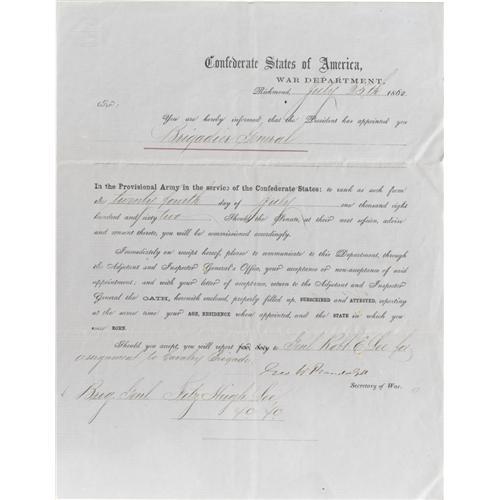 Confederate States of America,
WAR DEPARTMENT,
Richmond, July 25th 1862
Sir:
You are hereby informed, that the President has appointed you
Brigadier General
In the Provisional Army in the service of the Confederate States: to rank as such from
the twenty fourth day of July one thousand eight
hundred and sixty two Should the Senate, at their next session, advise
and consent thereto, you will be commissioned accordingly.
Immediately on receipt hereof, please to communicate to this Department, through
the Adjutant and Inspector General's Office, your acceptance or non-acceptance of said
appointment; and with your letter of acceptance, return to the Adjutant and Inspector
General the OATH, herewith enclosed, properly filled up, SUBSCRIBED and ATTESTED, reporting
at the same time your AGE, RESIDENCE when appointed, and the STATE in which you
were BORN.
Should you accept, you will report for duty to Genl Robt E. Lee for
assignment to Cavalry Brigade.
Geo W Randolph
Secretary of War.
Brig. Genl Fitz Hugh Lee